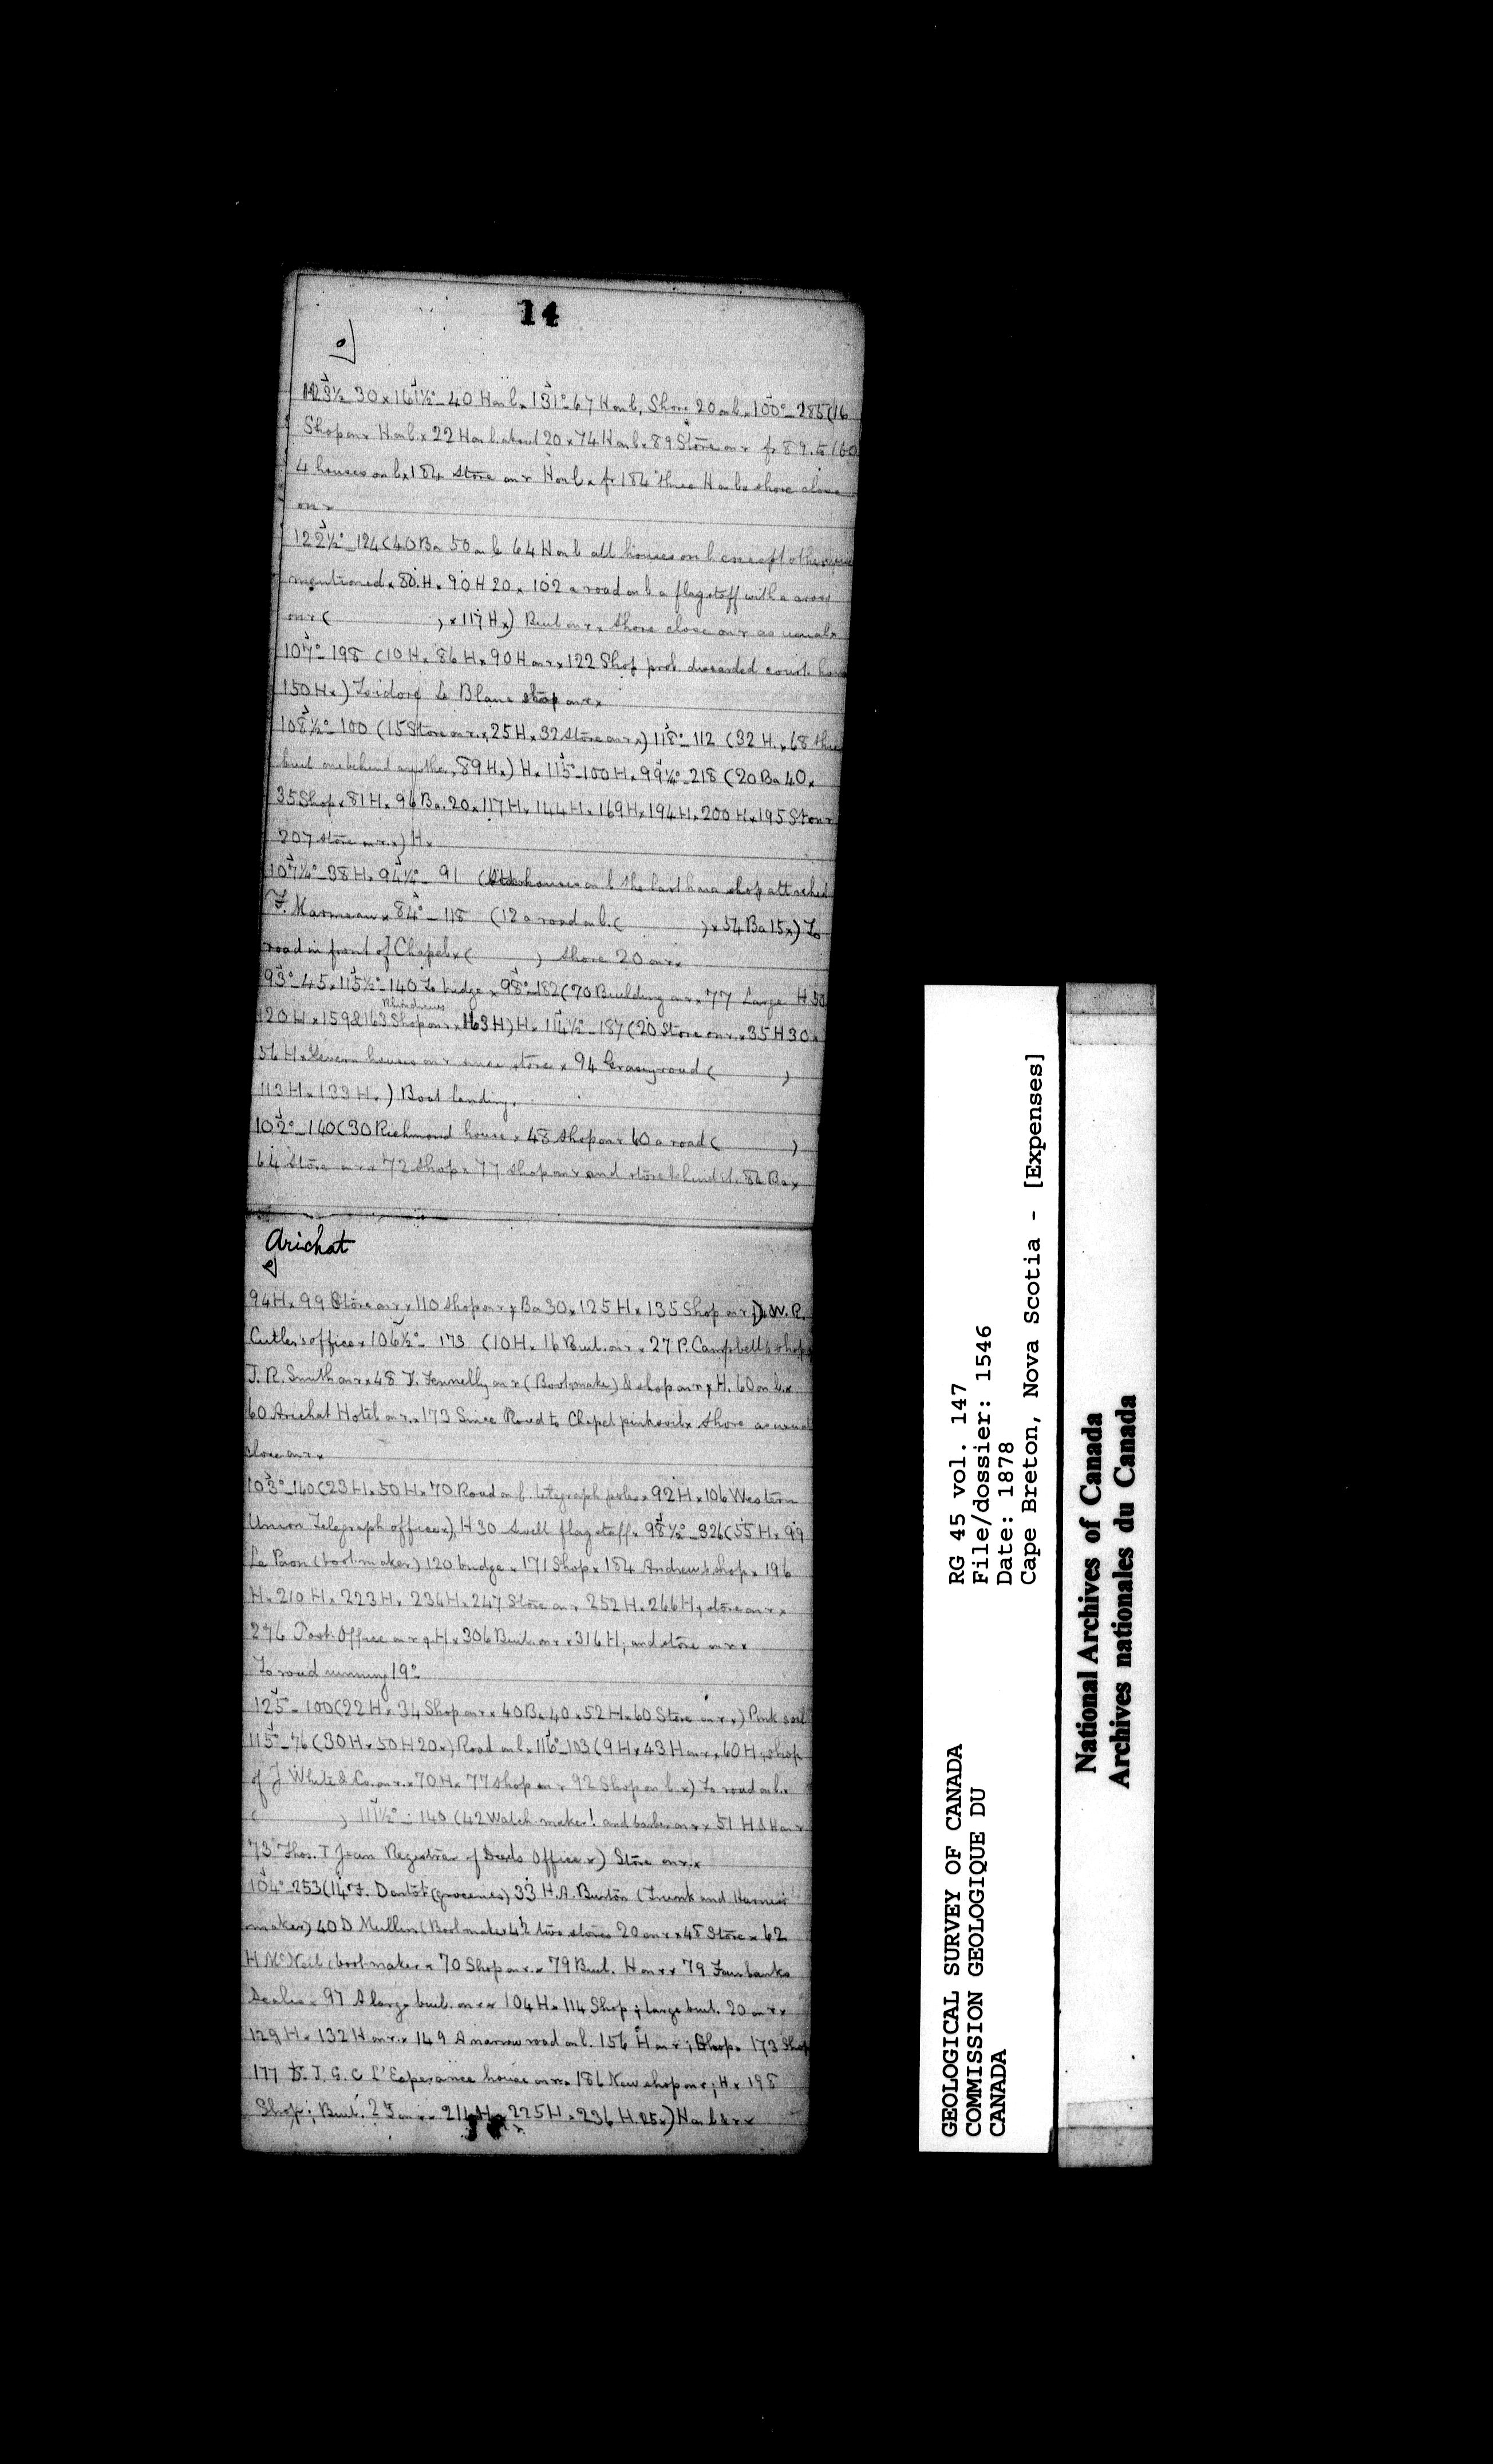 14
123½ 30 x 161½° 40 H on l. x 131° 67 H on l, Shore 20 on l. x 100° 285 (16
Shop on r H on l. x 22 H on l. about 20 x 74 H on l. x 89 Store on r fr 89. to 160
4 houses on l. x 184 store on r H on l. x fr 184 three H on l. x shore close
on r
122½° 124 (40 Ba 50 on l 64 H on l all houses on l except otherwise
mentioned x 80. H. x 90 H 20. x 102 a road on l a flagstaff with a cross
on r ( ) x 117 H x) Buil on r x shore close on r as usual x
107° 198 (10 H. x 86 H x 90 H on r x 122 Shop prob. discarded court house
150 H x) Isidore Le Blanc shop on r x
108½° 100 (15 Store on r. x 25 H x 32 Store on r x) 118° 112 (32 H. x 68 three
buil one behind another, 89 H x) H x 115° 100 H x 99¼° 218 (20 Ba 40 x
35 Shop x 81 H x 96 Ba. 20 x 117 H x 144 H x 169 H x 194 H x 200 H x 195 Store
207 store on r. x) H x
107¼° 38 H x 94½° 91 ( houses on l the last has a shop attached
F. Marmeau x 84° 118 (12 a road on l. ( ) x 54 Ba 15 x) To
road in front of Chapel x ( ) shore 20 on r x
93° 45 x 115½° 140 To bridge x 98° 182 (70 Building on r x 77 Large H 50
120 H x 159 & 163 Shop on r x 163 H) H x 114½° 187 (20 Store on r. x 35 H 30 x
56 H x Seven houses on r since store x 94 Grassy road ( )
113 H x 133 H x) Boat landing.
102° 140 (30 Richmond house x 48 Shop on r 60 a road ( )
64 Store on r x 72 Shop x 77 shop on r and store behind it. 84 Ba x
Arichat
94 H x 99 Store on r x 110 shop on r; Ba 30 x 125 H x 135 Shop on r;) W. R.
Cutler's office x 106½° 173 (10 H x 16 Buil. on r x 27 P. Campbell's shop
J. R. Smith on r x 48 T. Fennelly on r (Bootmaker) & shop on r; H. 60 on l. x
60 Arichat Hotel on r. x 173 Since Road to Chapel pink soil x Shore as usual
close on r x
103° 140 (23 H x 50 H x 70 Road on l. telegraph poles x 92 H x 106 Western
Union Telegraph office x) H 30 flagstaff x 98½° 326 (55 H x 99
Le Pavon (bootmaker) 120 bridge x 171 Shop x 184 Andrew's shop x 196
H x 210 H x 223 H x 234 H x 247 Store on r 252 H x 266 H; store on r x
276 Post Office on r; H x 306 Buil. on r x 316 H; and store on r x
To road running 19°
125° 100 (22 H x 34 Shop on r x 40 Ba 40 x 52 H x 60 Store on r x) Pink soil
115° 76 (30 H x 50 H 20 x) Road on l. x 116° 103 (9 H x 43 H on r x 60 H; shop
of J White & Co. on r. x 70 H x 77 shop on r 92 Shop on l. x) To road on l. x
( ) 111½° 140 (42 Watch maker! and barber on r x 51 H & H on r
73 Thos. T Jean Registrar of Deeds Office x) Store on r. x
104° 253 (14 F. (groceries) 33 H. A. Burton (Trunk and Harness
maker) 40 D Mullins (Bootmaker 42 two stores 20 on r x 45 Store x 62
H McNeil (bootmaker x 70 Shop on r. x 79 Buil. H on r x 79 Fairbanks
Dealer x 97 A large buil. on r x 104 H x 114 Shop; large buil. 20 on r x
129 H x 132 H on r. x 149 A narrow road on l. 156 H on r; Shop x 173 Shop
177 Dr. J. G. C L'Esperance house on r x 186 New shop on r; H x 198
Shop; Buil. on r x 214 H x 225 H x 236 H. 25 x) H on l & r x
GEOLOGICAL SURVEY OF CANADA
COMMISSION GEOLOGIQUE DU
CANADA
RG 45 vol. 147
File/dossier: 1546
Date: 1878
Cape Breton, Nova Scotia - [Expenses]
National Archives of Canada
Archives nationales du Canada